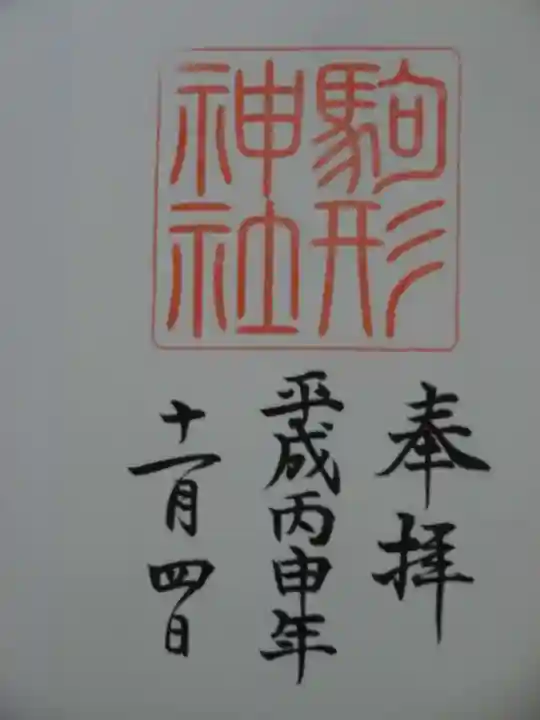 駒形
神社
奉拝
平成丙申年
十一月四日